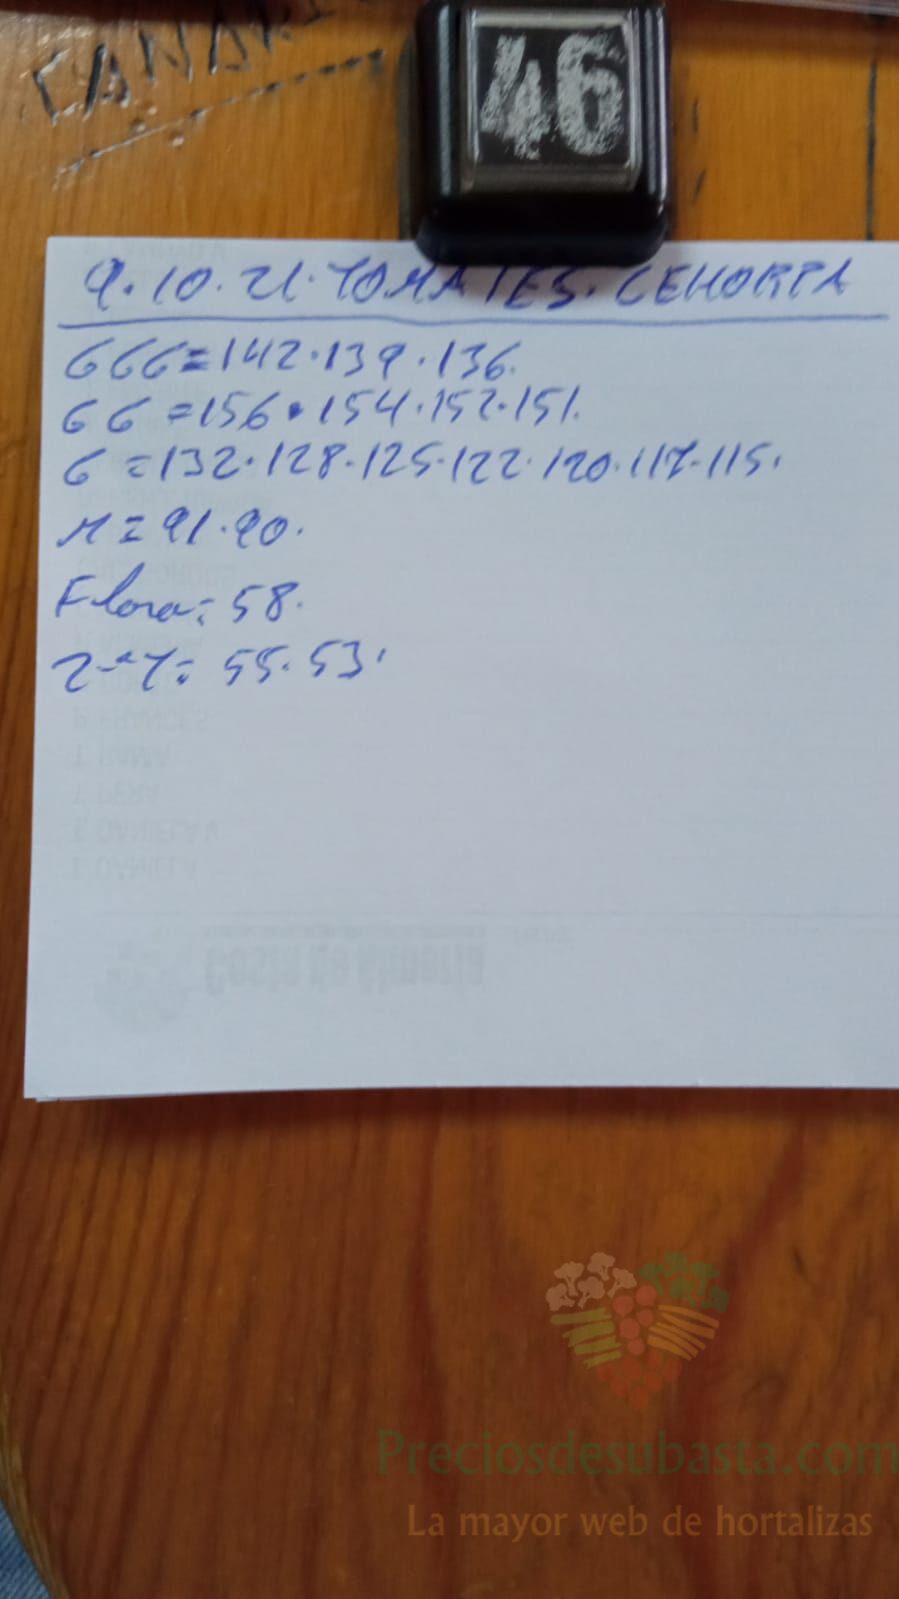 CANARI
46
9.10.21. TOMATES. CEHORPA
GGG = 142.139.136.
GG = 156.154.152.151.
G = 132.128.125.122.120.117.115.
M = 91.90.
Flora: 58.
2-ªT: 55.53.
Costa de Almería
Preciosdesubasta.com
La mayor web de hortalizas